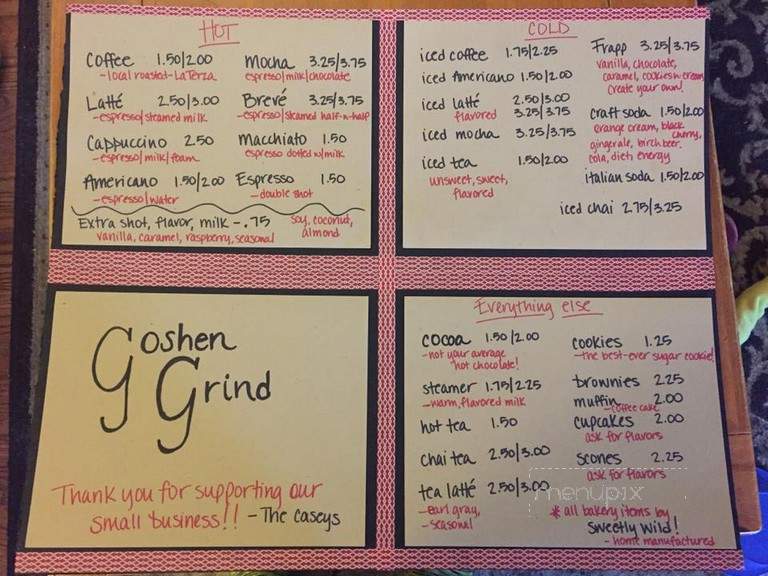 HOT
Coffee 1.50/2.00
-local roasted-LaTerza
Latté 2.50/3.00
-espresso/steamed milk
Cappuccino 2.50
-espresso/milk/foam
Americano 1.50/2.00
-espresso/water
Mocha 3.25/3.75
espresso/milk/chocolate
Brevé 3.25/3.75
-espresso/steamed half-n-half
Macchiato 1.50
espresso dotted w/milk
Espresso 1.50
-double shot
Extra shot, flavor, milk -.75
vanilla, caramel, raspberry, seasonal
soy, coconut,
almond
COLD
iced coffee 1.75/2.25
iced Americano 1.50/2.00
iced latté 2.50/3.00
flavored 3.25/3.75
iced mocha 3.25/3.75
iced tea 1.50/2.00
unsweet, sweet,
flavored
Frapp 3.25/3.75
vanilla, chocolate,
caramel, cookies-n-cream
create your own!
craft soda 1.50/2.00
orange cream, black
cherry,
gingerale, birch beer
cola, diet, energy
italian soda 1.50/2.00
iced chai 2.75/3.25
Goshen
Grind
Thank you for supporting our
small business!! -The Caseys
Everything else
cocoa 1.50/2.00
-not your average
hot chocolate!
steamer 1.75/2.25
-warm, flavored milk
hot tea 1.50
chai tea 2.50/3.00
tea latté 2.50/3.00
-earl gray,
-seasonal
cookies 1.25
-the best-ever sugar cookie!
brownies 2.25
muffin 2.00
-coffee cake
cupcakes 2.00
ask for flavors
scones 2.25
ask for flavors
menupix
* all bakery items by
Sweetly Wild!
-home manufactured